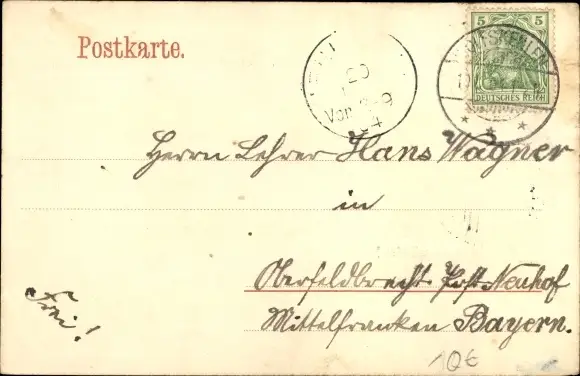 Postkarte.
5 5
DEUTSCHES REICH
20
Vor 8-9
04
Herrn Lehrer Hans Wagner
in
Oberfeldbrecht. Post Neuhof
Mittelfranken Bayern.
Frei!
10€